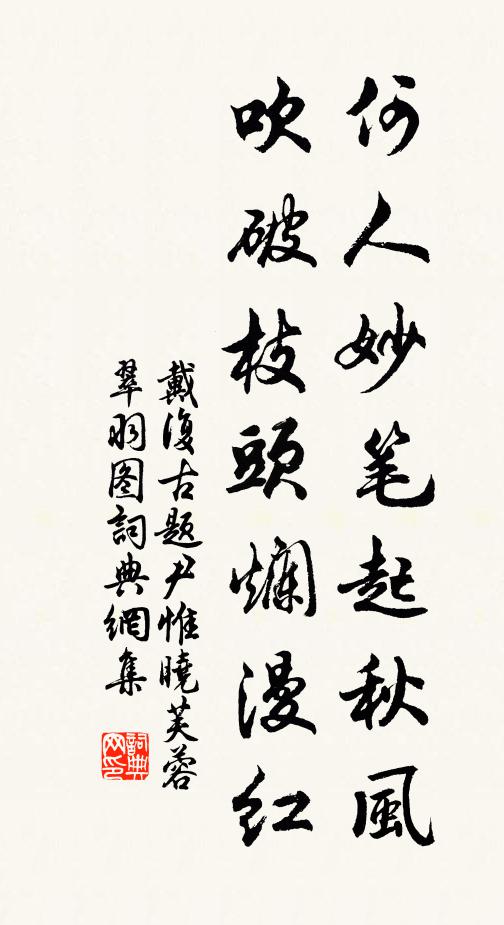 何人妙笔起秋風
吹破枝頭爛漫紅
戴復古題尹惟曉芙蓉
翠羽图詞典網集
詞典
网印